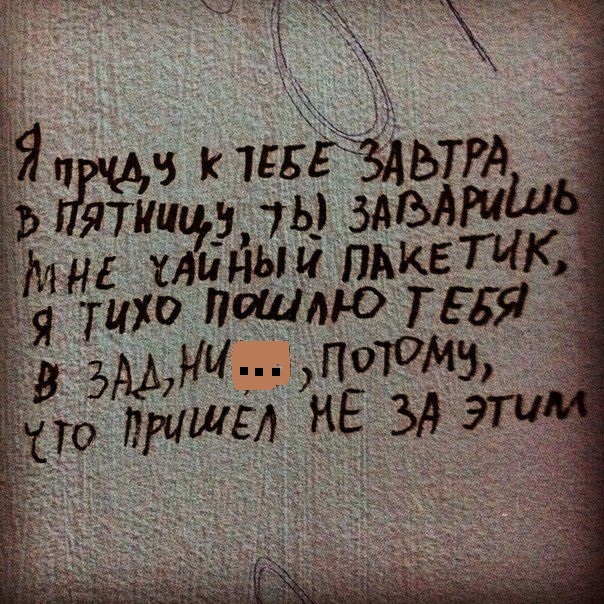 Я приду к ТЕБЕ ЗАВТРА,
В ПЯТНИЦУ, ТЫ ЗАВАРИШЬ
МНЕ ЧАЙНЫЙ ПАКЕТИК,
Я ТИХО ПОШЛЮ ТЕБЯ
В ЗАД, НИ... , ПОТОМУ,
ЧТО ПРИШЕЛ НЕ ЗА ЭТИМ